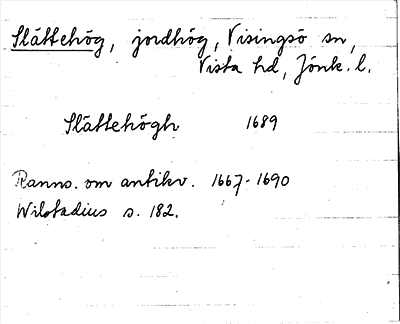 Slättehög, jordhög, Visingsö sn,
Vista hd, Jönk. l.
Slättehögh 1689
Ranns. om antikv. 1667-1690
Wilstadius s. 182.